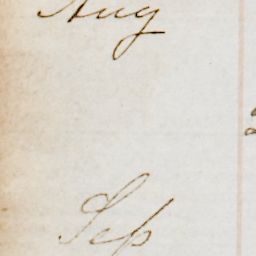 Aug
Sep